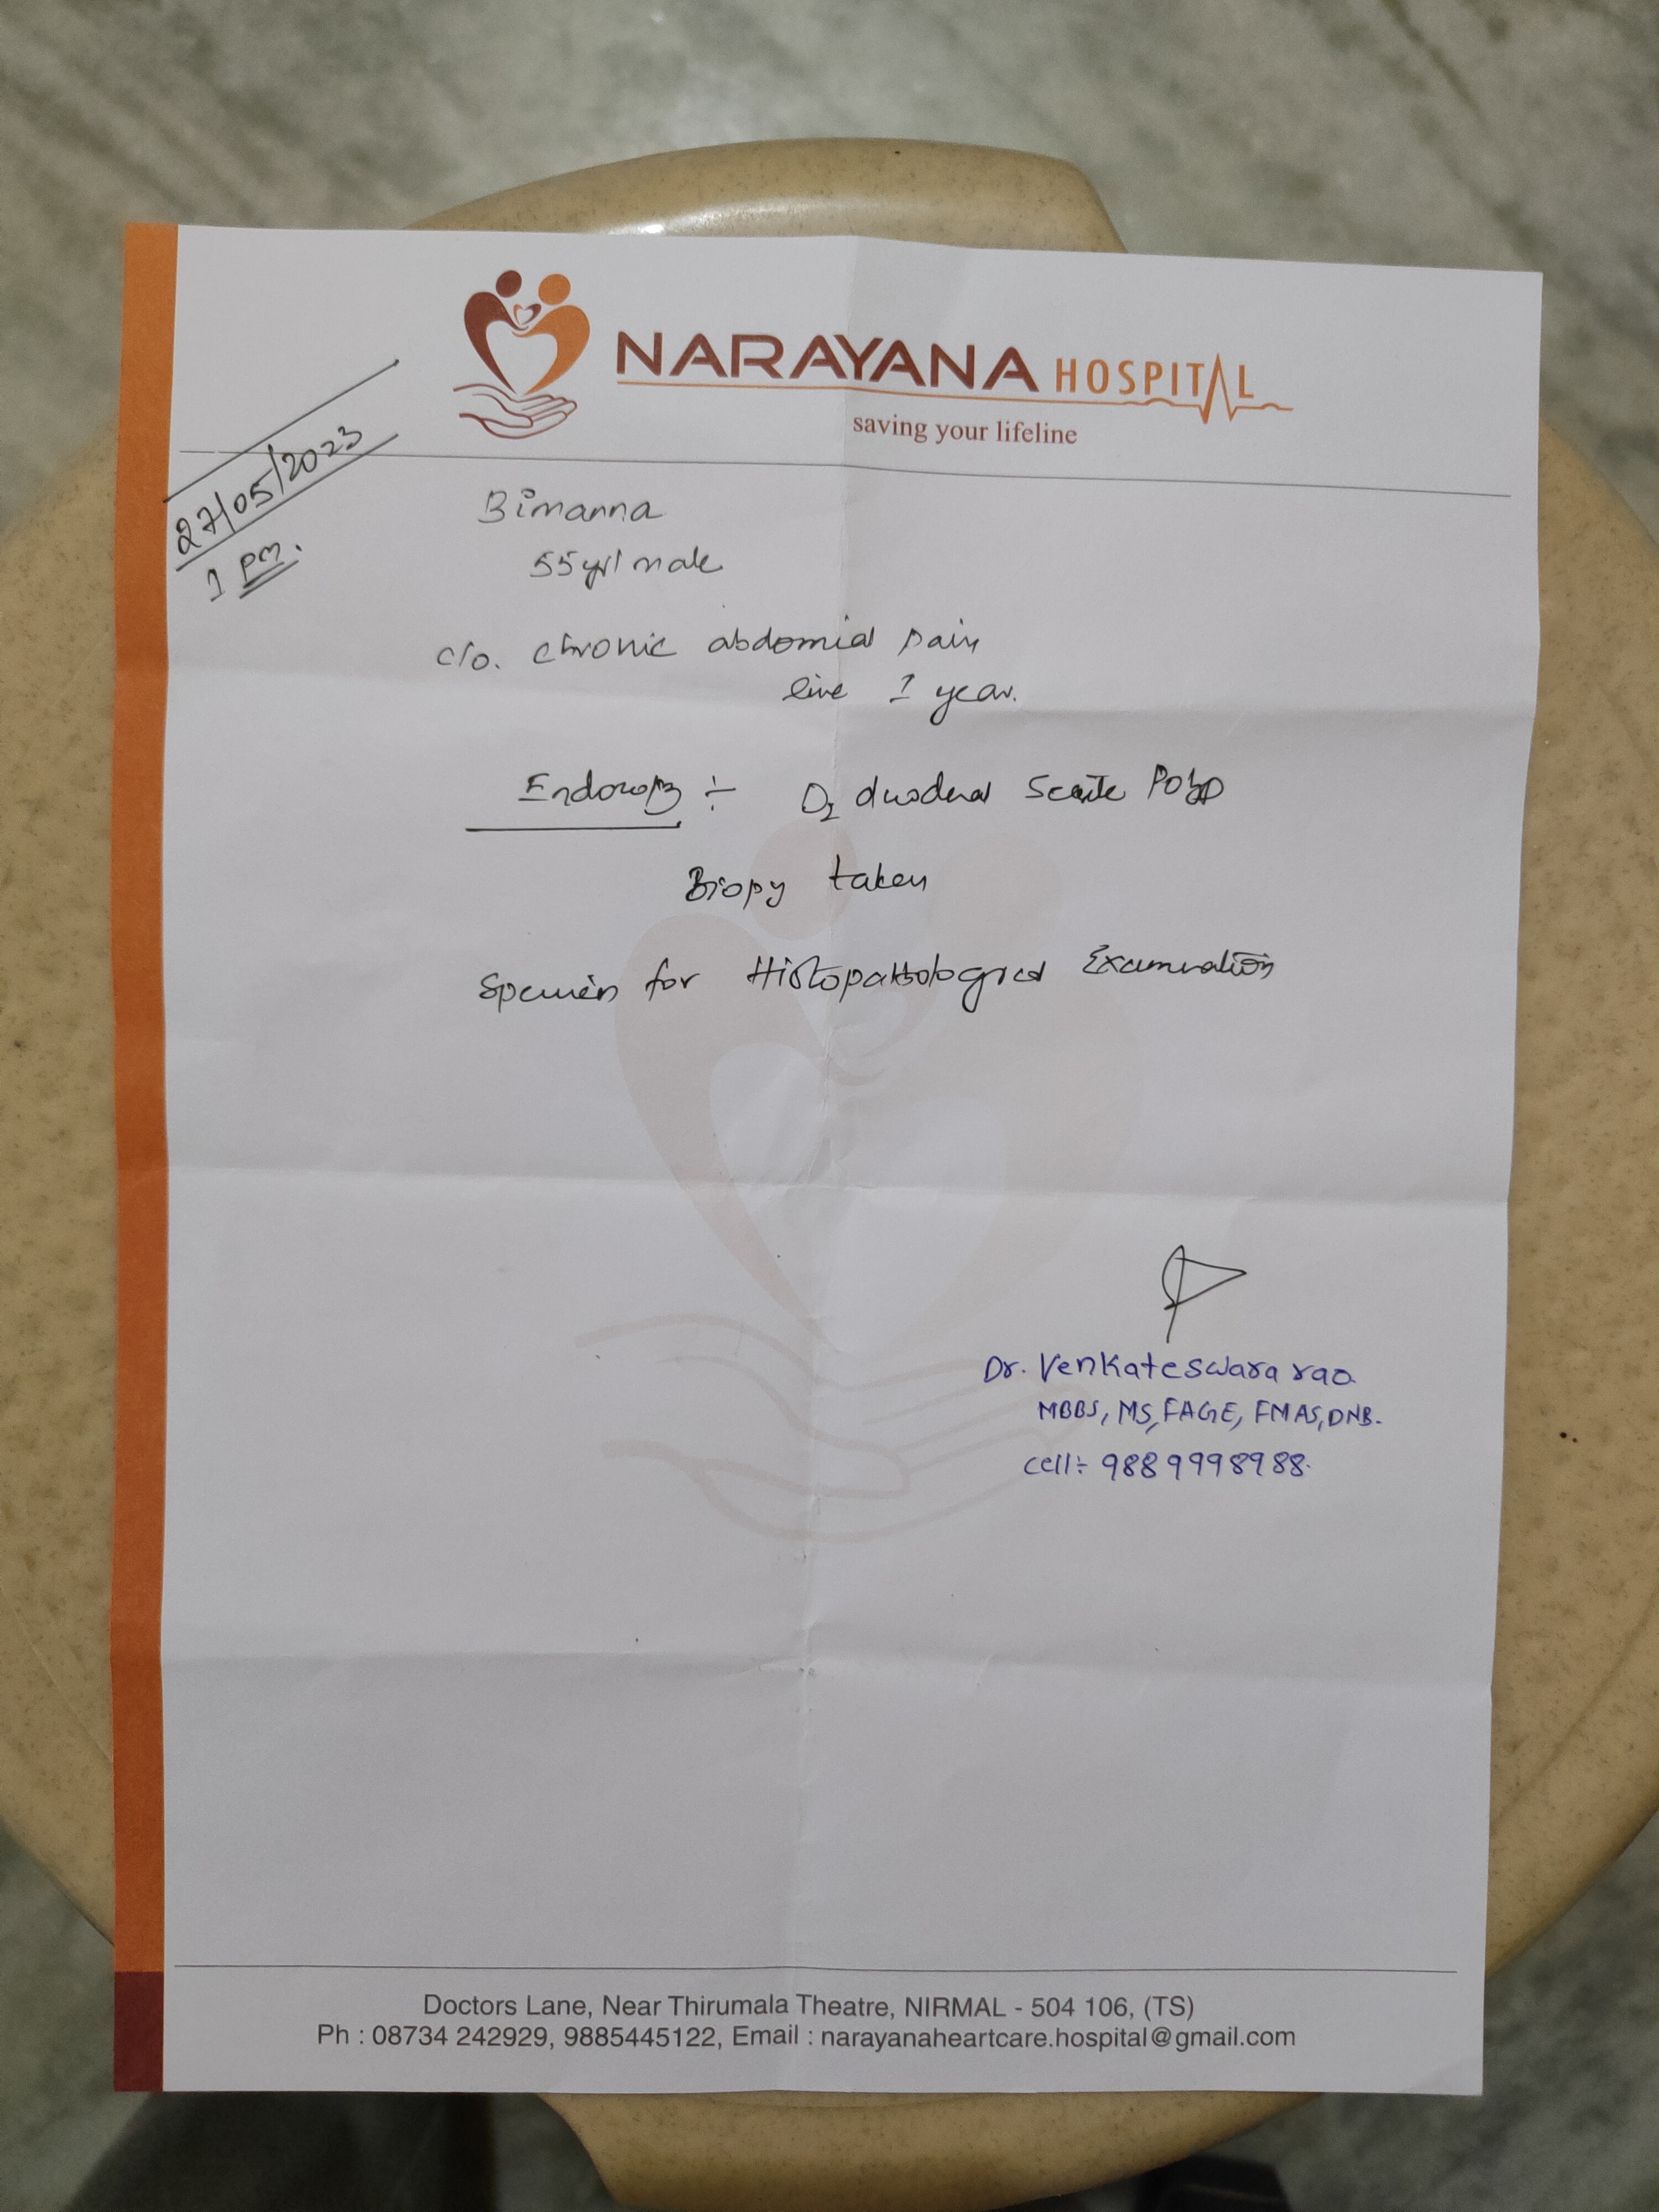 NARAYANA HOSPITAL
saving your lifeline
27/05/2023
1 pm.
Bimanna
55yr/male
c/o. chronic abdomial pain
1 year.
Endoscopy ÷ D2 duodenal Polyp
Biopy taken
Specimen for Histopathological Examination
Dr. Venkateswara rao
MBBS, MS, FAGE, FMAS, DNB.
cell÷ 9889998988.
Doctors Lane, Near Thirumala Theatre, NIRMAL - 504 106, (TS)
Ph : 08734 242929, 9885445122, Email : narayanaheartcare.hospital@gmail.com